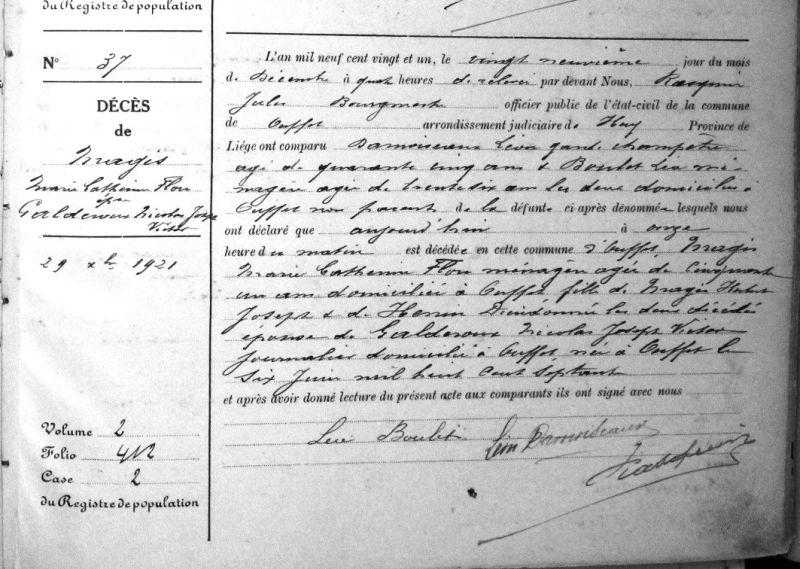 du Registre de population
N° 37
DÉCÈS
de
Magis
Marie Catherine Flore
épse
Galderoux Nicolas Joseph
Victor
29 xbre 1921
Volume 2
Folio 412
Case 2
du Registre de population
L'an mil neuf cent vingt et un, le vingt neuvième jour du mois
de Décembre à quatre heures de relevée par devant Nous,
Jules Bourgmestre officier public de l'état-civil de la commune
de Ouffet arrondissement judiciaire de Huy Province de
Liége ont comparu Damoiseaux Léon garde champêtre
agé de quarante cinq ans & Boulet Léa mé-
nagère agée de trente six ans les deux domiciliés à
Ouffet non parents de la défunte ci-après dénommée lesquels nous
ont déclaré que aujourd'hui à onze
heure du matin est décédée en cette commune d'Ouffet, Magis
Marie Catherine Flore ménagère agée de cinquante
un ans domiciliée à Ouffet, fille de Magis Hubert
Joseph & de Henin Dieudonnée les deux décédés
épouse de Galderoux Nicolas Joseph Victor
journalier domicilié à Ouffet née à Ouffet le
six Juin mil huit cent septante
et après avoir donné lecture du présent acte aux comparants ils ont signé avec nous
Boulet Léon Damoiseaux